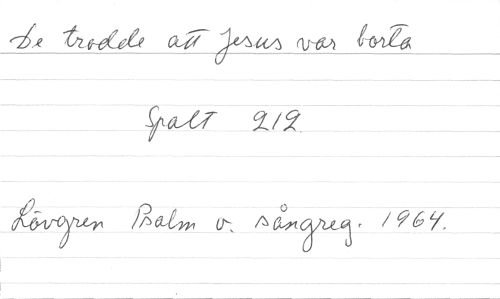 De trodde att Jesus var borta
Spalt 212.
Lövgren Psalm o. sångreg. 1964.